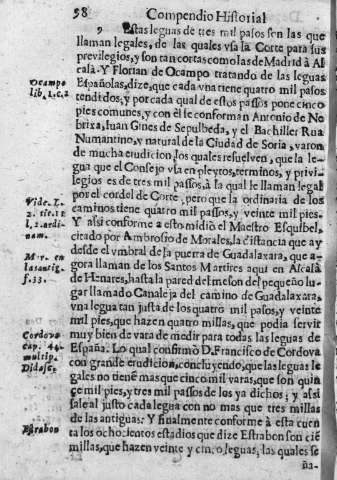 58
Compendio Historial
9 Estas leguas de tres mil passos son las que
llaman legales, de las quales vsa la Corte para sus
previlegios, y son tan cortas como las de Madrid à Al
calà. Y Florian de Ocampo tratando de las leguas
Españolas, dize, que cada vna tiene quatro mil passos
tendidos, y por cada qual de estos passos pone cinco
pies comunes, y con èl se conforman Antonio de No
brixa, Iuan Gines de Sepulbeda, y el Bachiller Rua
Numantino, y natural de la Ciudad de Soria, varon
de mucha erudicion, los quales resuelven, que la le-
gua que el Consejo vsa en pleytos, terminos, y privi-
legios es de tres mil passos, à la qual le llaman legal
por el cordel de Corte, pero que la ordinaria de los
caminos tiene quatro mil passos, y veinte mil pies.
Y assi conforme a esto midiò el Maestro Esquibel,
citado por Ambrosio de Morales, la distancia que ay
desde el vmbral de la puerta de Guadalaxara, que a-
gora llaman de los Santos Martires aqui en Alcalà
de Henares, hasta la pared del meson del pequeño lu-
gar llamado Canaleja del camino de Guadalaxara,
vna legua tan justa de los quatro mil passos, y veinte
mil pies, que hazen quatro millas, que podia servir
muy bien de vara de medir para todas las leguas de
España. Lo qual confirmò D. Francisco de Cordova
con grande erudicion, concluyendo, que las leguas le
gales no tienè mas que cinco mil varas, que son quin
çe mil pies, y tres mil passos de los ya dichos; y assi
sale al justo cada legua con no mas que tres millas
de las antiguas. Y finalmente conforme à esta cuen
ta los ochocientos estadios que dize Estrabon son ciē
millas, que hazen veinte y cinco leguas, las quales se
ña-
Ocampo
lib. 1. c. 2
Vide. L.
2. tit. 1
l. 2. ordi-
nam.
Mor. en
las antig.
f. 33.
Cordova
cap. 44.
multip.
Didasc.
Estrabon